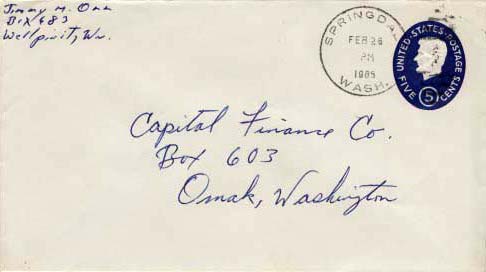 Jimmy M. Orr
Box 683
Wellpinit, Wn.
SPRINGDALE
FEB 26
PM
1965
WASH.
UNITED·STATES·POSTAGE
FIVE 5 CENTS
Capital Finance Co.
Box 603
Omak, Washington